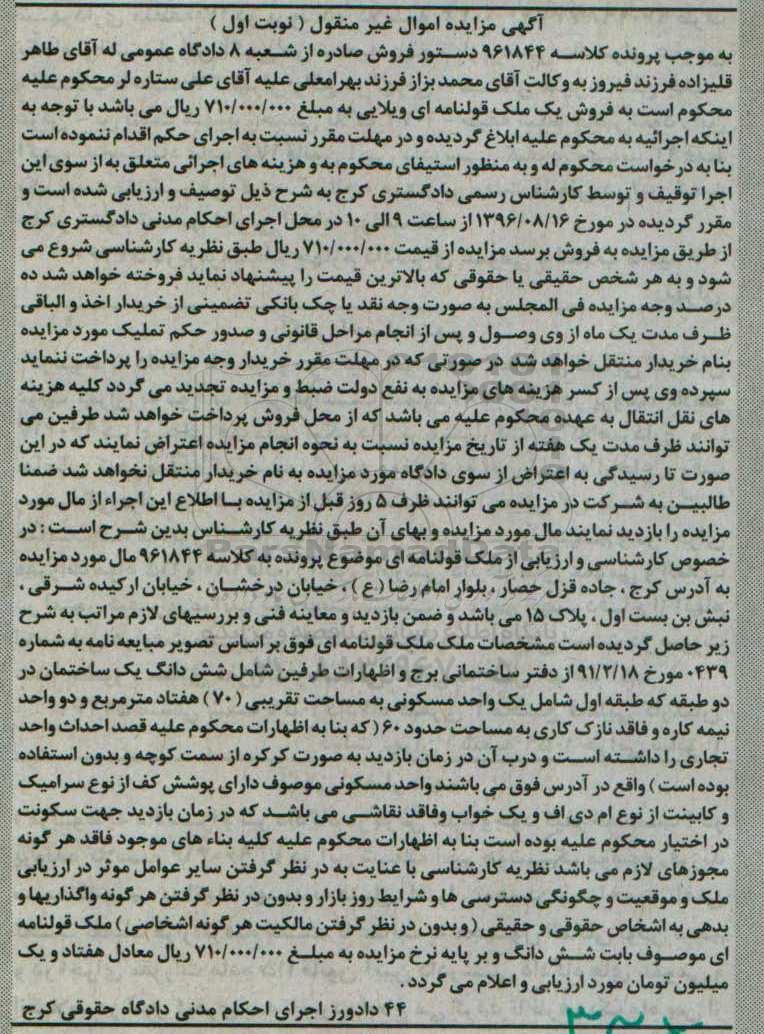 آگهی مزایده اموال غیر منقول ( نوبت اول )
به موجب پرونده کلاسه ۹۶۱۸۴۴ دستور فروش صادره از شعبه ۸ دادگاه عمومی له آقای طاهر
قلیزاده فرزند فیروز به وکالت آقای محمد بزاز فرزند بهرامعلی علیه آقای علی ستاره لر محکوم علیه
محکوم است به فروش یک ملک قولنامه ای ویلایی به مبلغ ۷۱۰/۰۰۰/۰۰۰ ریال می باشد با توجه به
اینکه اجرائیه به محکوم علیه ابلاغ گردیده و در مهلت مقرر نسبت به اجرای حکم اقدام ننموده است
بنا به درخواست محکوم له و به منظور استیفای محکوم به و هزینه های اجرائی متعلق به از سوی این
اجرا توقیف و توسط کارشناس رسمی دادگستری کرج به شرح ذیل توصیف و ارزیابی شده است و
مقرر گردیده در مورخ ۱۳۹۶/۰۸/۱۶ از ساعت ۹ الی ۱۰ در محل اجرای احکام مدنی دادگستری کرج
از طریق مزایده به فروش برسد مزایده از قیمت ۷۱۰/۰۰۰/۰۰۰ ریال طبق نظریه کارشناسی شروع می
شود و به هر شخص حقیقی یا حقوقی که بالاترین قیمت را پیشنهاد نماید فروخته خواهد شد ده
درصد وجه مزایده فی المجلس به صورت وجه نقد یا چک بانکی تضمینی از خریدار اخذ و الباقی
ظرف مدت یک ماه از وی وصول و پس از انجام مراحل قانونی و صدور حکم تملیک مورد مزایده
بنام خریدار منتقل خواهد شد در صورتی که در مهلت مقرر خریدار وجه مزایده را پرداخت ننماید
سپرده وی پس از کسر هزینه های مزایده به نفع دولت ضبط و مزایده تجدید می گردد کلیه هزینه
های نقل انتقال به عهده محکوم علیه می باشد که از محل فروش پرداخت خواهد شد طرفین می
توانند ظرف مدت یک هفته از تاریخ مزایده نسبت به نحوه انجام مزایده اعتراض نمایند که در این
صورت تا رسیدگی به اعتراض از سوی دادگاه مورد مزایده به نام خریدار منتقل نخواهد شد ضمنا
طالبین به شرکت در مزایده می توانند ظرف ۵ روز قبل از مزایده با اطلاع این اجراء از مال مورد
مزایده را بازدید نمایند مال مورد مزایده و بهای آن طبق نظریه کارشناس بدین شرح است : در
خصوص کارشناسی و ارزیابی از ملک قولنامه ای موضوع پرونده به کلاسه ۹۶۱۸۴۴ مال مورد مزایده
به آدرس کرج ، جاده قزل حصار ، بلوار امام رضا ( ع ) ، خیابان درخشان ، خیابان ارکیده شرقی ،
نبش بن بست اول ، پلاک ۱۵ می باشد و ضمن بازدید و معاینه فنی و بررسیهای لازم مراتب به شرح
زیر حاصل گردیده است مشخصات ملک ملک قولنامه ای فوق بر اساس تصویر مبایعه نامه به شماره
۰۴۳۹ مورخ ۹۱/۲/۱۸ از دفتر ساختمانی برج و اظهارات طرفین شامل شش دانگ یک ساختمان در
دو طبقه که طبقه اول شامل یک واحد مسکونی به مساحت تقریبی ( ۷۰ ) هفتاد مترمربع و دو واحد
نیمه کاره و فاقد نازک کاری به مساحت حدود ۶۰ ( که بنا به اظهارات محکوم علیه قصد احداث واحد
تجاری را داشته است و درب آن در زمان بازدید به صورت کرکره از سمت کوچه و بدون استفاده
بوده است ) واقع در آدرس فوق می باشند واحد مسکونی موصوف دارای پوشش کف از نوع سرامیک
و کابینت از نوع ام دی اف و یک خواب وفاقد نقاشی می باشد که در زمان بازدید جهت سکونت
در اختیار محکوم علیه بوده است بنا به اظهارات محکوم علیه کلیه بناء های موجود فاقد هر گونه
مجوزهای لازم می باشد نظریه کارشناسی با عنایت به در نظر گرفتن سایر عوامل موثر در ارزیابی
ملک و موقعیت و چگونگی دسترسی ها و شرایط روز بازار و بدون در نظر گرفتن هر گونه واگذاریها و
بدهی به اشخاص حقوقی و حقیقی ( و بدون در نظر گرفتن مالکیت هر گونه اشخاصی ) ملک قولنامه
ای موصوف بابت شش دانگ و بر پایه نرخ مزایده به مبلغ ۷۱۰/۰۰۰/۰۰۰ ریال معادل هفتاد و یک
میلیون تومان مورد ارزیابی و اعلام می گردد .
۴۴ دادورز اجرای احکام مدنی دادگاه حقوقی کرج